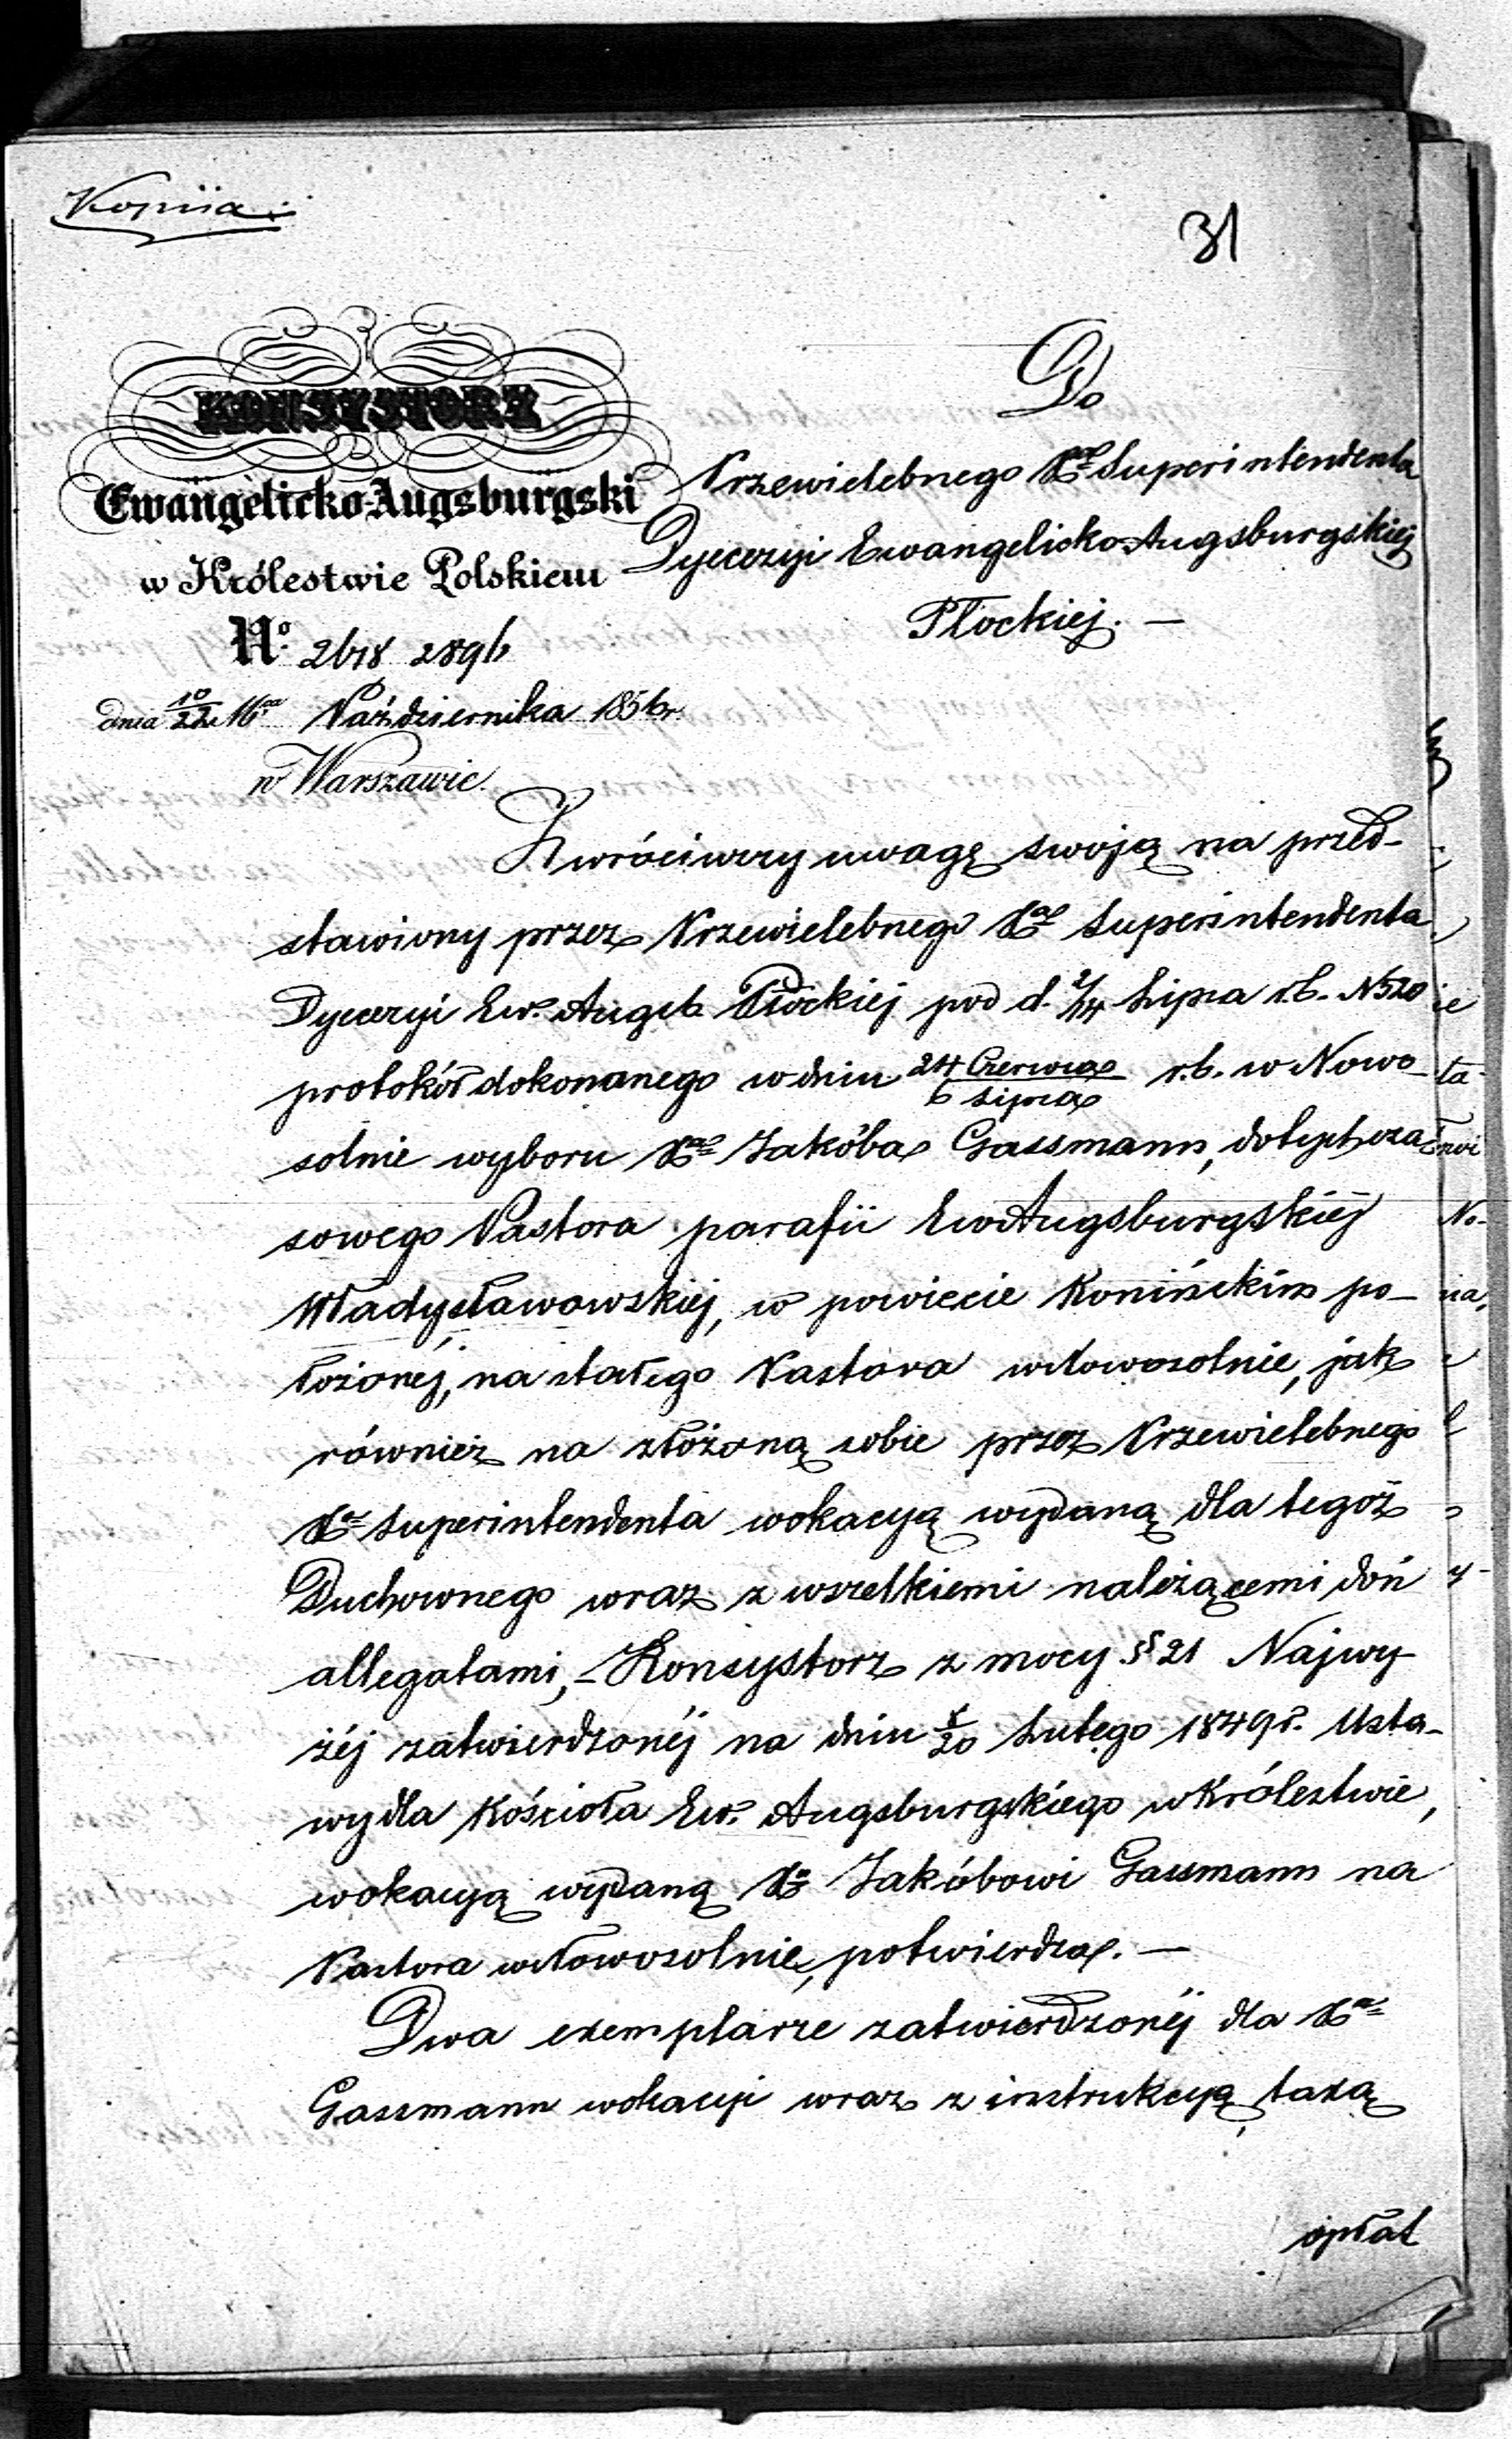 Kopiia:
31
KONSYSTORZ
Ewangelicko-Augsburgski
w Królestwie Polskiem
No. 2618 2896
dnia 10/22 Mca Października 1856 r.
w Warszawie.
Do
Przewielebnego Xa Superintendenta
Dyecezyi Ewangelicko Augsburgskiej
Płockiej. —
Zwróciwszy uwagę swoją na przed-
stawiony przez Przewielebnego Xa Superintendenta
Dyecezyi Ew. Augsb Płockiej pod d. 2/14 Lipca r.b. N 520
protokół dokonanego w dniu 24 Czerwca/6 Lipca r.b. w Nowo-
solnie wyboru Xa Jakóba Gassmann, dotychcza-
sowego Pastora parafii Ew Augsburgskiéj
Władysławowskiej, w powiecie Konińskim po-
łożonéj, na stałego Pastora w Nowosolnie, jak
również na złożoną sobie przez Przewielebnego
Xa Superintendenta wokacyą wydaną dla tegoż
Duchownego wraz z wszelkiemi należącemi doń
allegatami, – Konsystorz z mocy § 21 Najwy-
żéj zatwierdzonéj na dniu 8/20 Lutego 1849 r. Usta-
wy dla Kościoła Ew. Augsburgskiego w Królestwie,
wokacyą wydaną Xo Jakóbowi Gassmann na
Pastora w Nowosolnie, potwierdza. —
Dwa exemplarze zatwierdzonéj dla Xa
Gassmann wokacyi wraz z instrukcyą, taxą
opłat